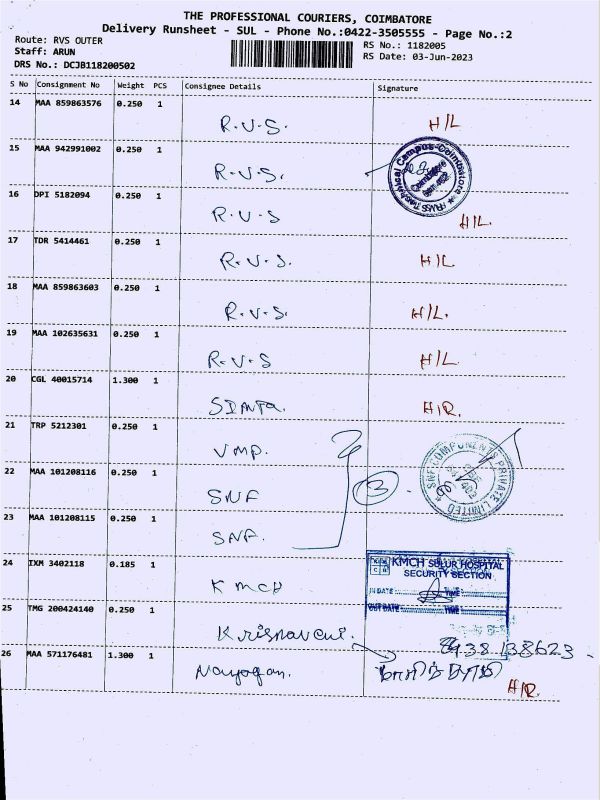 THE PROFESSIONAL COURIERS, COIMBATORE
Delivery Runsheet - SUL - Phone No.:0422-3505555 - Page No.:2
Route: RVS OUTER
Staff: ARUN
DRS No.: DCJB118200502
RS No.: 1182005
RS Date: 03-Jun-2023
S No Consignment No Weight PCS Consignee Details Signature
14 MAA 859863576 0.250 1
R.V.S. H/L
15 MAA 942991002 0.250 1
R.V.S.
RVS Technical Campus-Coimbatore
Coimbatore
16 DPI 5182094 0.250 1
R.V.S H/L.
17 TDR 5414461 0.250 1
R.V.S. H/L
18 MAA 859863603 0.250 1
R.V.S. H/L.
19 MAA 102635631 0.250 1
R.V.S H/L
20 CGL 40015714 1.300 1
H/R.
21 TRP 5212301 0.250 1
VMP.
22 MAA 101208116 0.250 1
SNF
3
SNF COMPONENTS PRIVATE LIMITED
23 MAA 101208115 0.250 1
SNF.
24 IXM 3402118 0.185 1
KMCH
KMCH SULUR HOSPITAL
SECURITY SECTION
IN DATE TIME
OUT DATE TIME
25 TMG 200424140 0.250 1
26 MAA 571176481 1.300 1
Nayagan.
H/R.